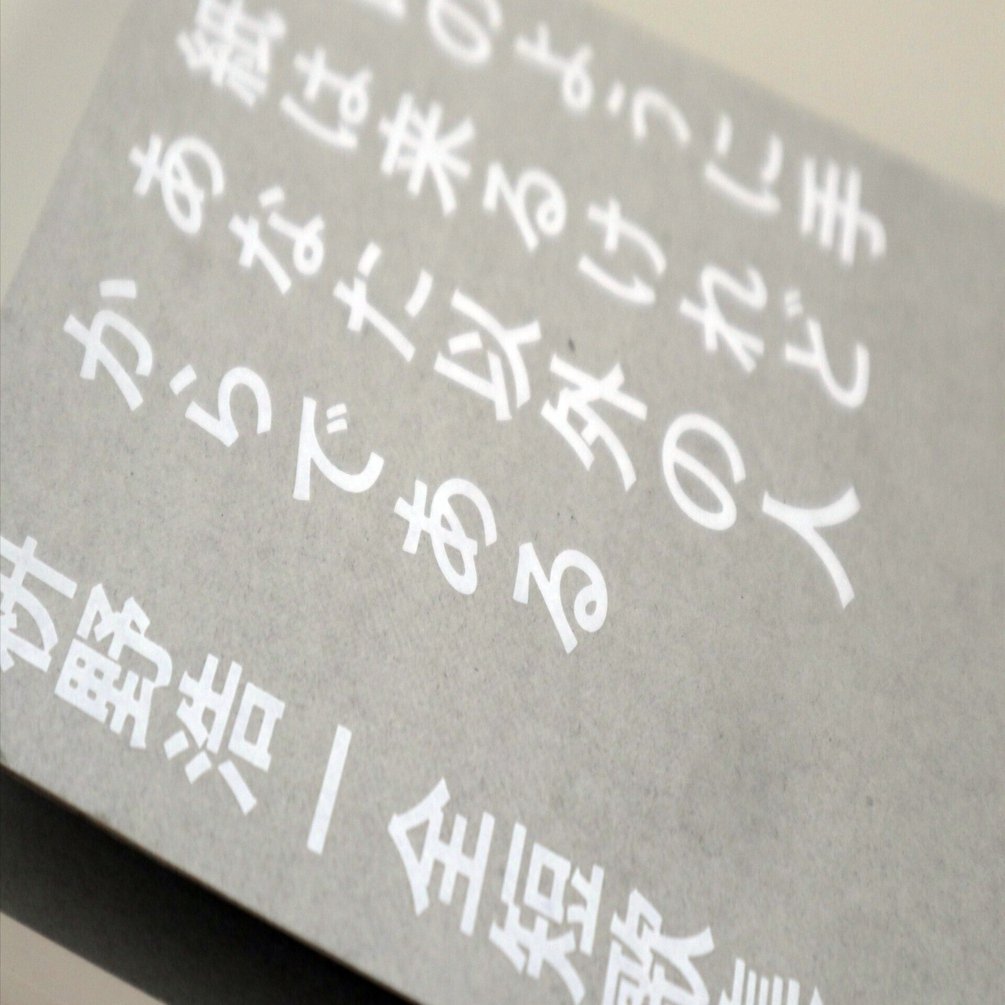 のように手
紙は来るけれど
あなた以外の人
からである
枡野浩一全短歌